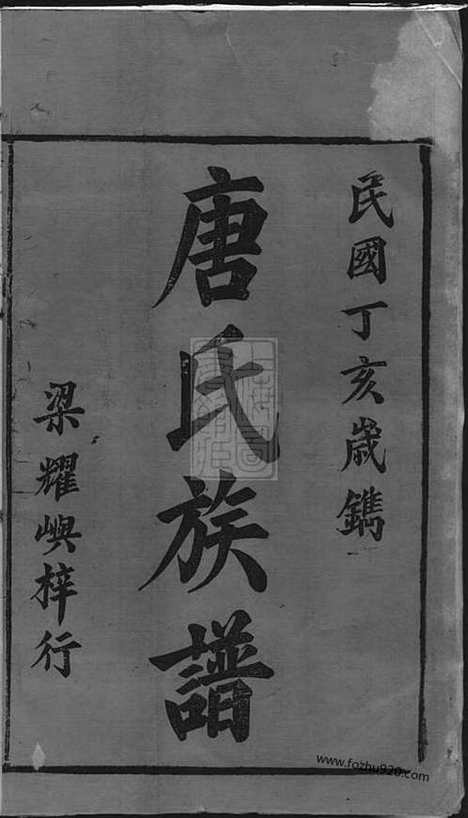 民國丁亥歲鐫
唐氏族譜
梁耀嶼梓行
www.fozhu920.com